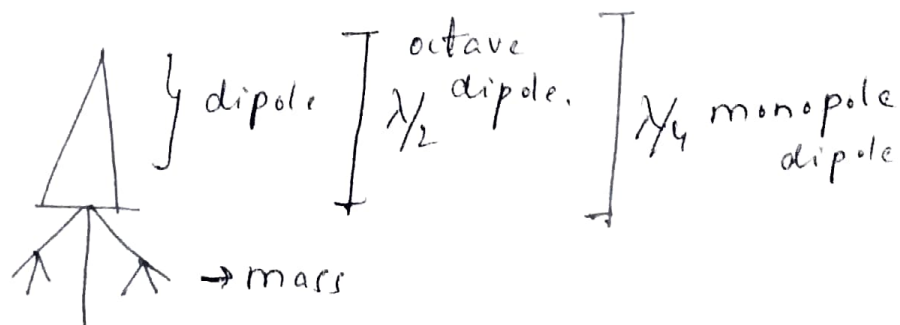 dipole
octave
λ/2 dipole.
λ/4 monopole
dipole
→ mass